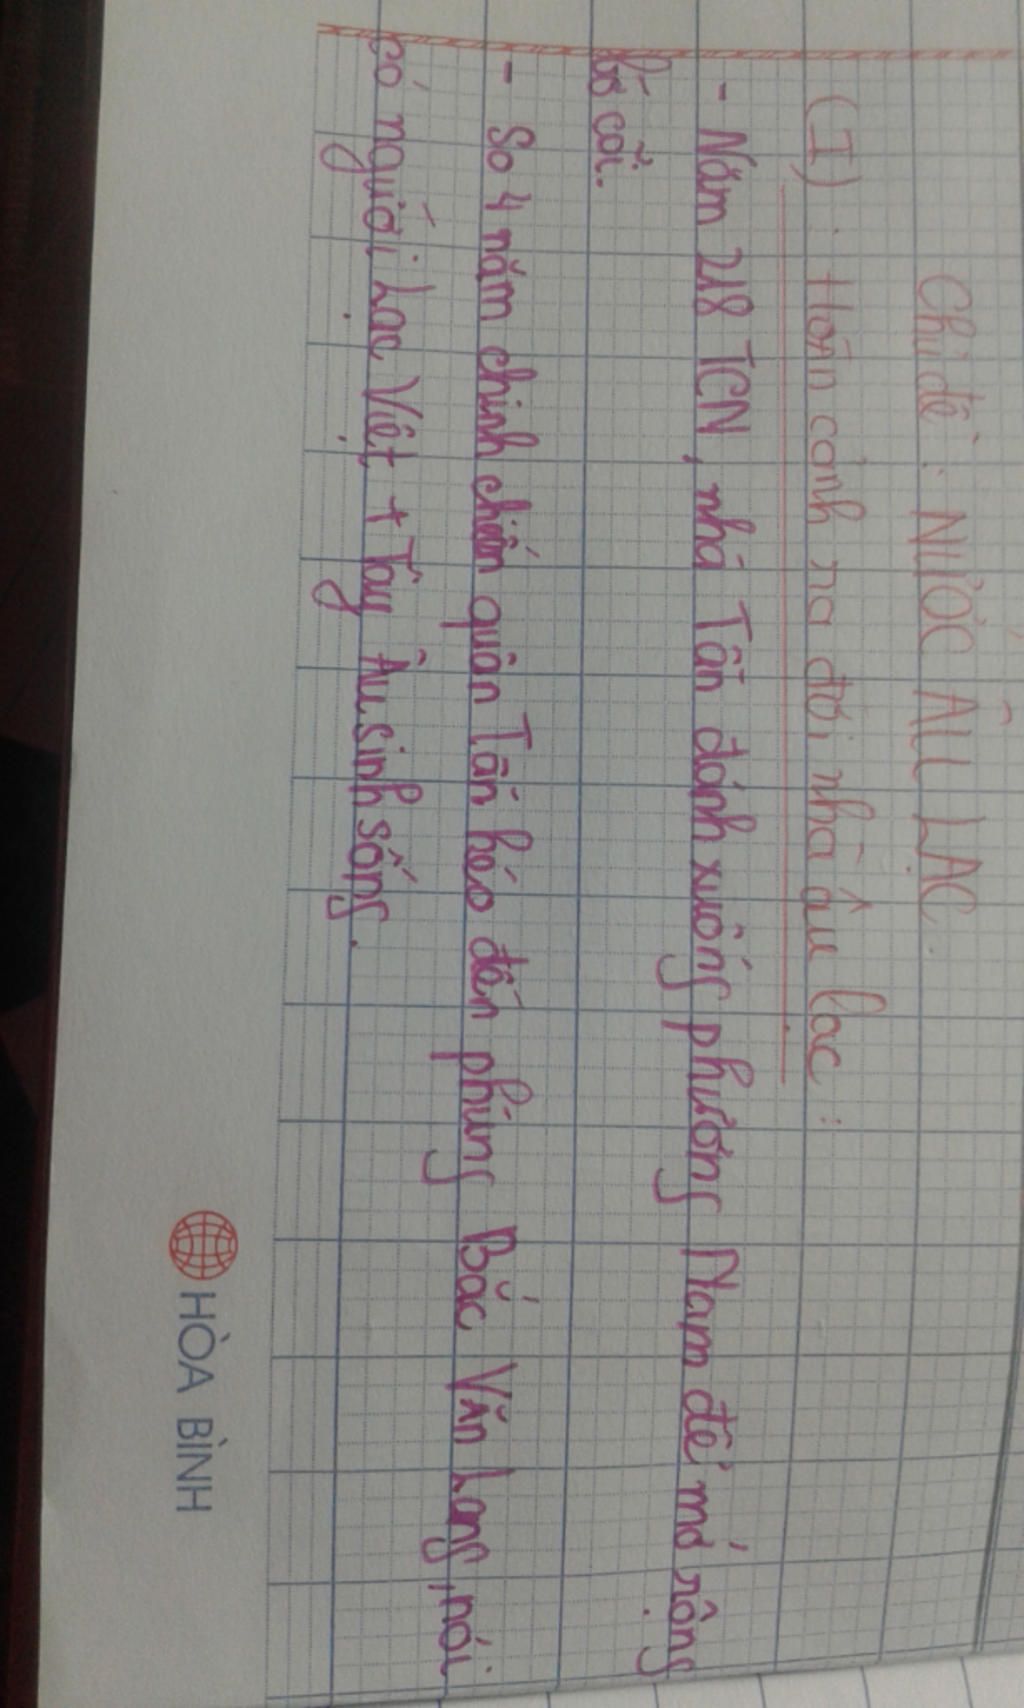 Chủ đề : NƯỚC ÂU LẠC.
(I). Hoàn cảnh ra đời nhà âu lạc :
- Năm 218 TCN, nhà Tần đánh xuống phương Nam để mở rộng
bờ cõi.
- Sơ 4 năm chinh chiến quân Tần kéo đến phùng Bắc Văn Lang, nơi
có người Lạc Việt + Tây Âu sinh sống.
HÒA BÌNH